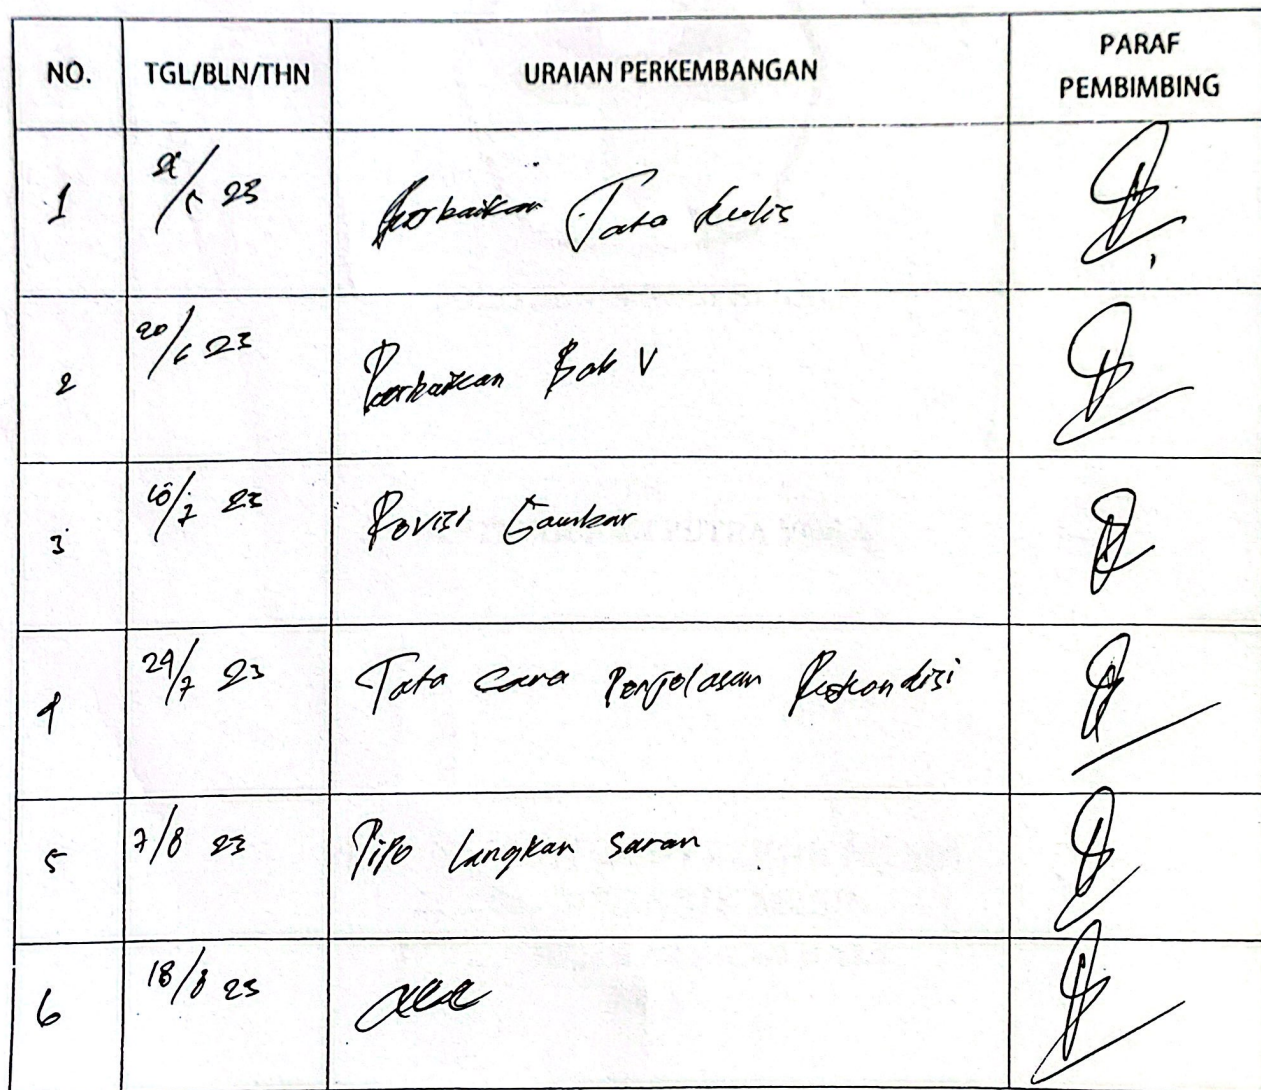 NO. TGL/BLN/THN URAIAN PERKEMBANGAN PARAF PEMBIMBING
1 /5 23 Perbaikan Tata tulis
2 20/6 23 Perbaikan Bab V
3 10/7 23 Revisi Gambar
4 24/7 23 Tata cara Pengelasan Rekondisi
5 7/8 23 Langkan saran
6 18/8 23 acc